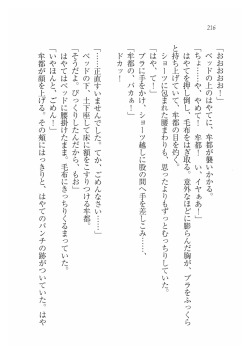 216
おおおおお！」
ベッドの上のはやてに、牟都が襲いかかる。
「ちょ……や、やめて！　牟都！　い、イヤぁあ！」
はやてを押し倒し、毛布をはぎ取る。意外なほどに膨らんだ胸が、ブラをふっくら
と持ち上げていて、牟都の目を釘付ける。
ショーツに包まれた腰まわりも、思ったよりもずっとむっちりとしていて……。
「はや、て！」
ブラに手をかけ、ショーツ越しに股の間へ手を差しこみ……、
「牟都の、バカぁ！」
ドカッ！
「……正直すいませんでした。てか、ごめんなさい……」
ベッドの下、土下座して床に額をこすりつける牟都。
「そうだよ。びっくりしたんだから、もお」
はやてはベッドに腰掛けたまま。毛布にきっちりくるまっていた。
「いやほんと、ごめん！」
牟都が顔を上げる。その頬にはっきりと、はやてのパンチの跡がついていた。はや